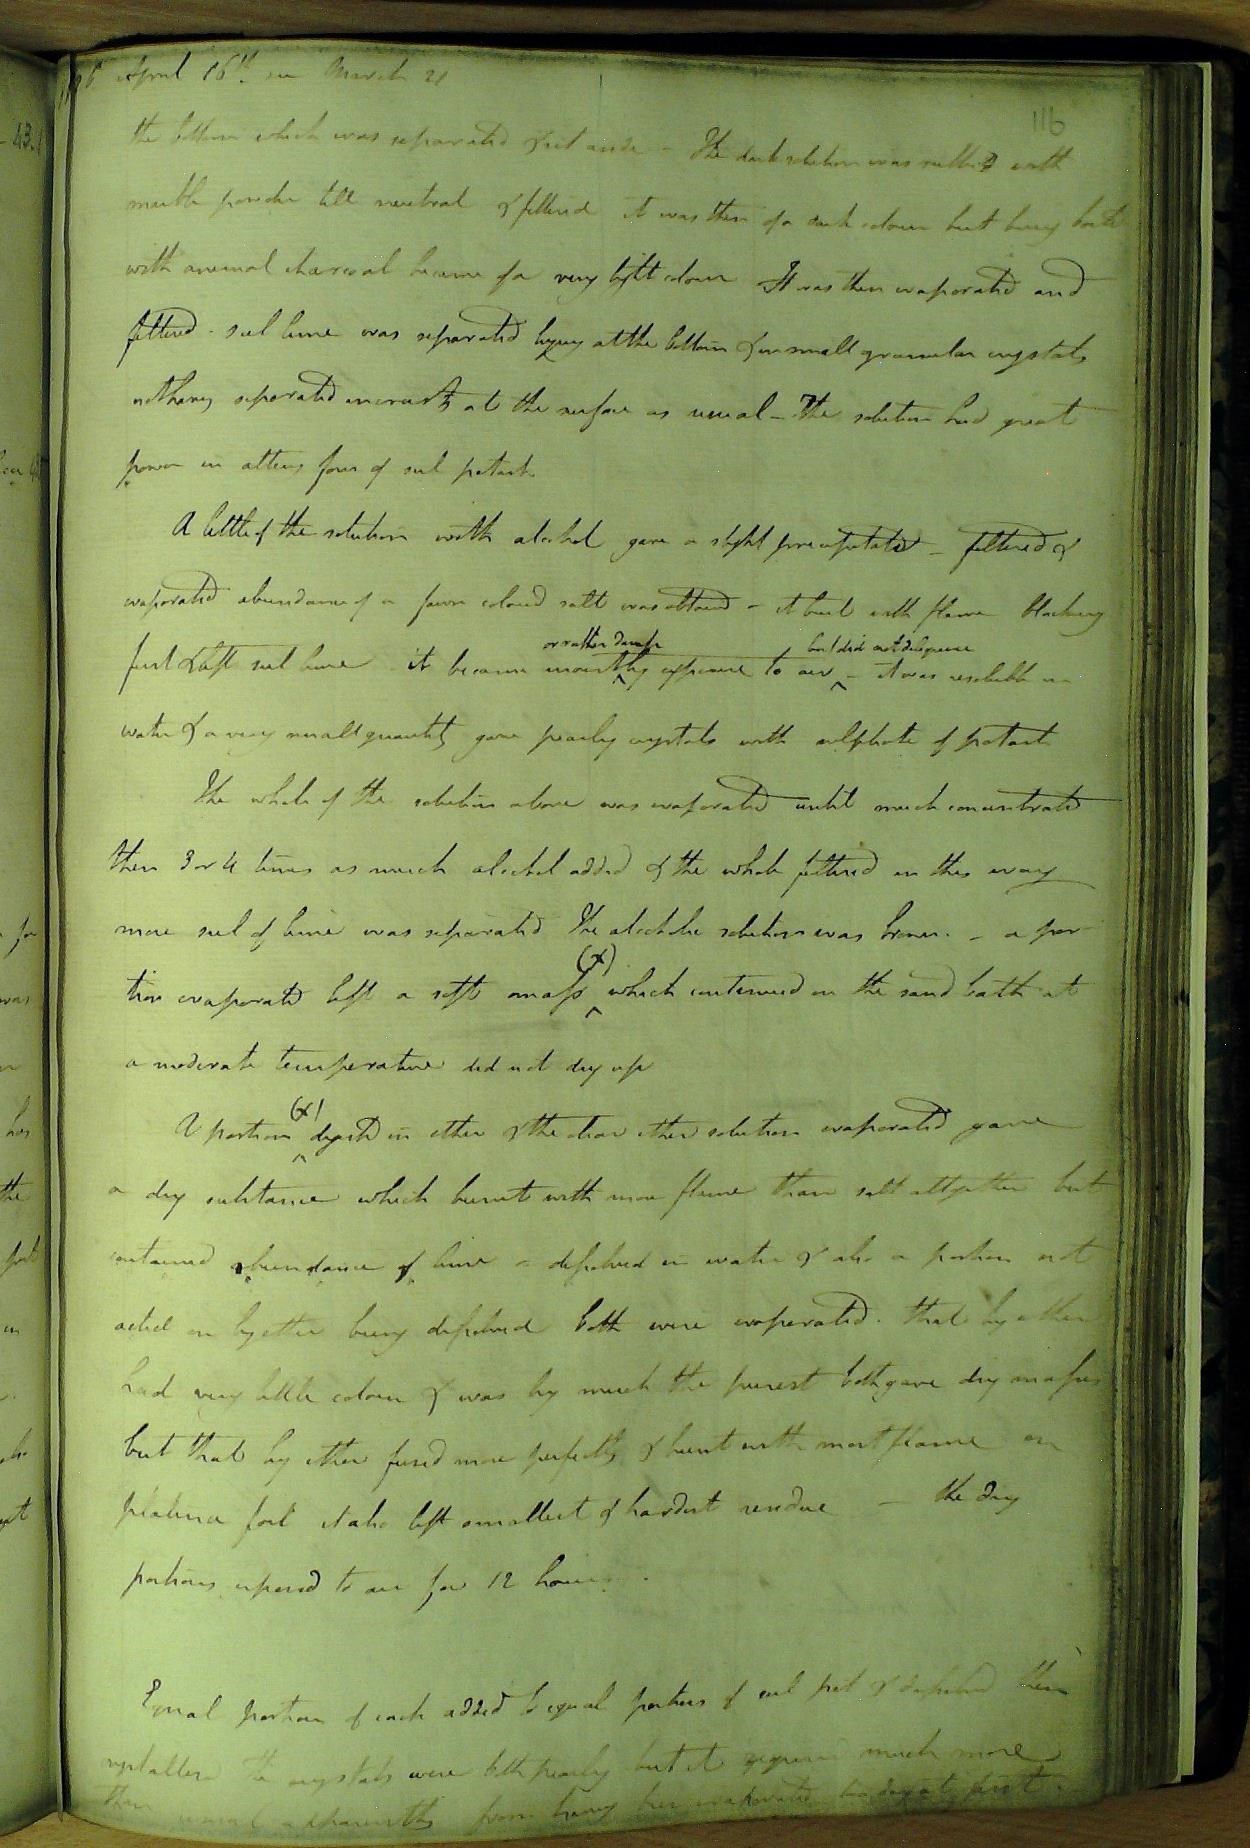 April 16th. see March 21
116
the bottom which was separated & set aside - The dark solution was rubbed with
marble powder till neutral & filtered it was then of a dark colour but being boild
with animal charcoal became of a very light colour It was then evaporated and
filtered. sul lime was separated lying at the bottom & in small granular crystals
not having separated in crusts at the surface as usual - The solution had great
power in altering form of sul potash
A little of the solution with alcohol gave a slight precipitate - filtered &
evaporated abundance of a fawn colourd salt was obtained - it burnt with flame blackening
first & left sul lime it became moist
or rather damp
by exposure to air
but did not deliquesce
- it was resoluble in
water & a very small quantity gave pearly crystals with sulphate of potash
The whole of the solution above was evaporated until much concentrated
then 3 or 4 times as much alcohol added & the whole filtered in this way
more sul of lime was separated The alcoholic solution was brown. - a por-
tion evaporated left a soft mass (x) which continued on the sand bath at
a moderate temperature did not dry up
A portion (x) digested in ether & the clear ether solution evaporated gave
a dry substance which burnt with more flame than salt altogether but
contained abundance of lime - dissolved in water & also a portion not
acted on by ether being dissolved both were evaporated. that by ether
had very little colour & was by much the purest both gave dry masses
but that by ether fused more perfectly & burnt with most flame on
platina foil it also left smallest & hardest residue - the dry
portions exposed to air for 12 hours.
Equal portions of each added to equal portions of sul pot & dissolved then
crystallized the crystals were both pearly but it required much more
than usual apparently from having been evaporated too dry at first.